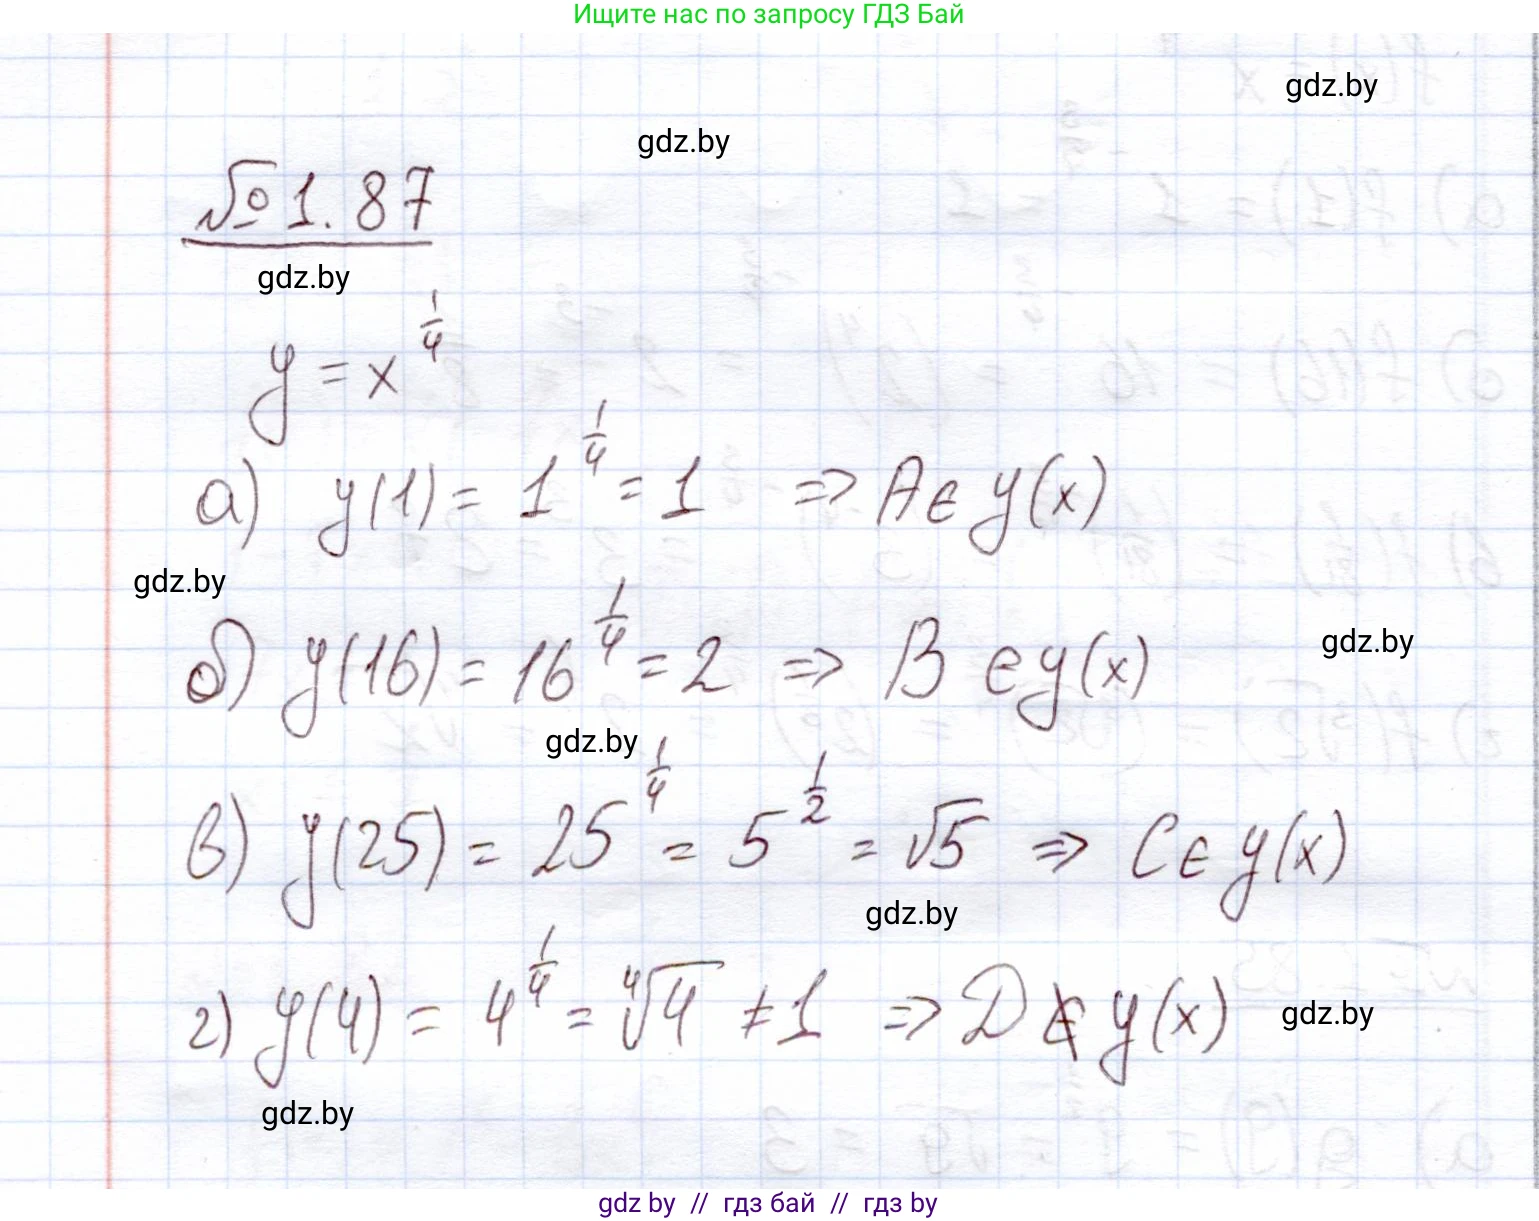 Ищите нас по запросу ГДЗ Бай
gdz.by
gdz.by
№ 1.87
gdz.by
y = x^{1/4}
а) y(1) = 1^{1/4} = 1 => A ∈ y(x)
gdz.by
б) y(16) = 16^{1/4} = 2 => B ∈ y(x)
gdz.by
gdz.by
в) y(25) = 25^{1/4} = 5^{1/2} = √5 => C ∈ y(x)
gdz.by
г) y(4) = 4^{1/4} = ∜4 ≠ 1 => D ∉ y(x)
gdz.by
gdz.by
gdz by // гдз бай // гдз by